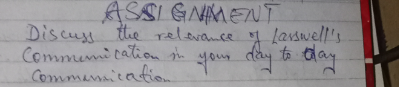 ASSIGNMENT
Discuss the relevance of Larswell's
Communication in your day to day
Communication